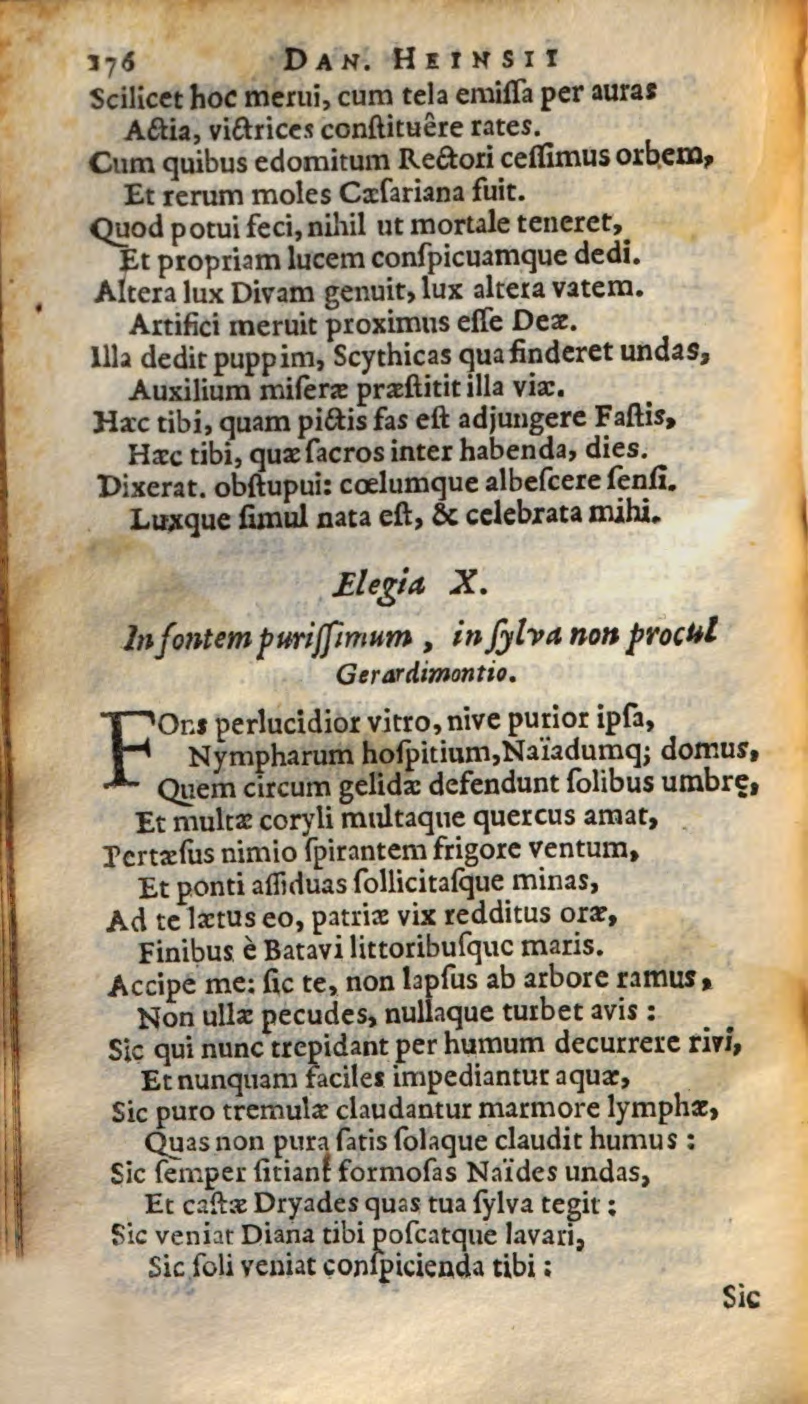 176 DAN. HEINSII
Scilicet hoc merui, cum tela emiſſa per auras
Actia, victrices conſtituêre rates.
Cum quibus edomitum Rectori ceſſimus orbem,
Et rerum moles Cæſariana fuit.
Quod potui feci, nihil ut mortale teneret,
Et propriam lucem conſpicuamque dedi.
Altera lux Divam genuit, lux altera vatem.
Artifici meruit proximus eſſe Deæ.
Illa dedit puppim, Scythicas qua finderet undas,
Auxilium miſeræ præſtitit illa viæ.
Hæc tibi, quam pictis fas eſt adjungere Faſtis,
Hæc tibi, quæ ſacros inter habenda, dies.
Dixerat. obſtupui: cœlumque albeſcere ſenſi.
Luxque ſimul nata eſt, & celebrata mihi.
Elegia X.
In fontem puriſſimum, in ſylva non procul
Gerardimontio.
FOns perlucidior vitro, nive purior ipſa,
Nympharum hoſpitium, Naïadumq; domus,
Quem circum gelidæ defendunt ſolibus umbrę,
Et multæ coryli multaque quercus amat,
Pertæſus nimio ſpirantem frigore ventum,
Et ponti aſſiduas ſollicitaſque minas,
Ad te lætus eo, patriæ vix redditus oræ,
Finibus è Batavi littoribuſque maris.
Accipe me: ſic te, non lapſus ab arbore ramus,
Non ullæ pecudes, nullaque turbet avis:
Sic qui nunc trepidant per humum decurrere rivi,
Et nunquam faciles impediantur aquæ,
Sic puro tremulæ claudantur marmore lymphæ,
Quas non pura ſatis ſolaque claudit humus:
Sic ſemper ſitiant formoſas Naïdes undas,
Et caſtæ Dryades quas tua ſylva tegit:
Sic veniat Diana tibi poſcatque lavari,
Sic ſoli veniat conſpicienda tibi:
Sic